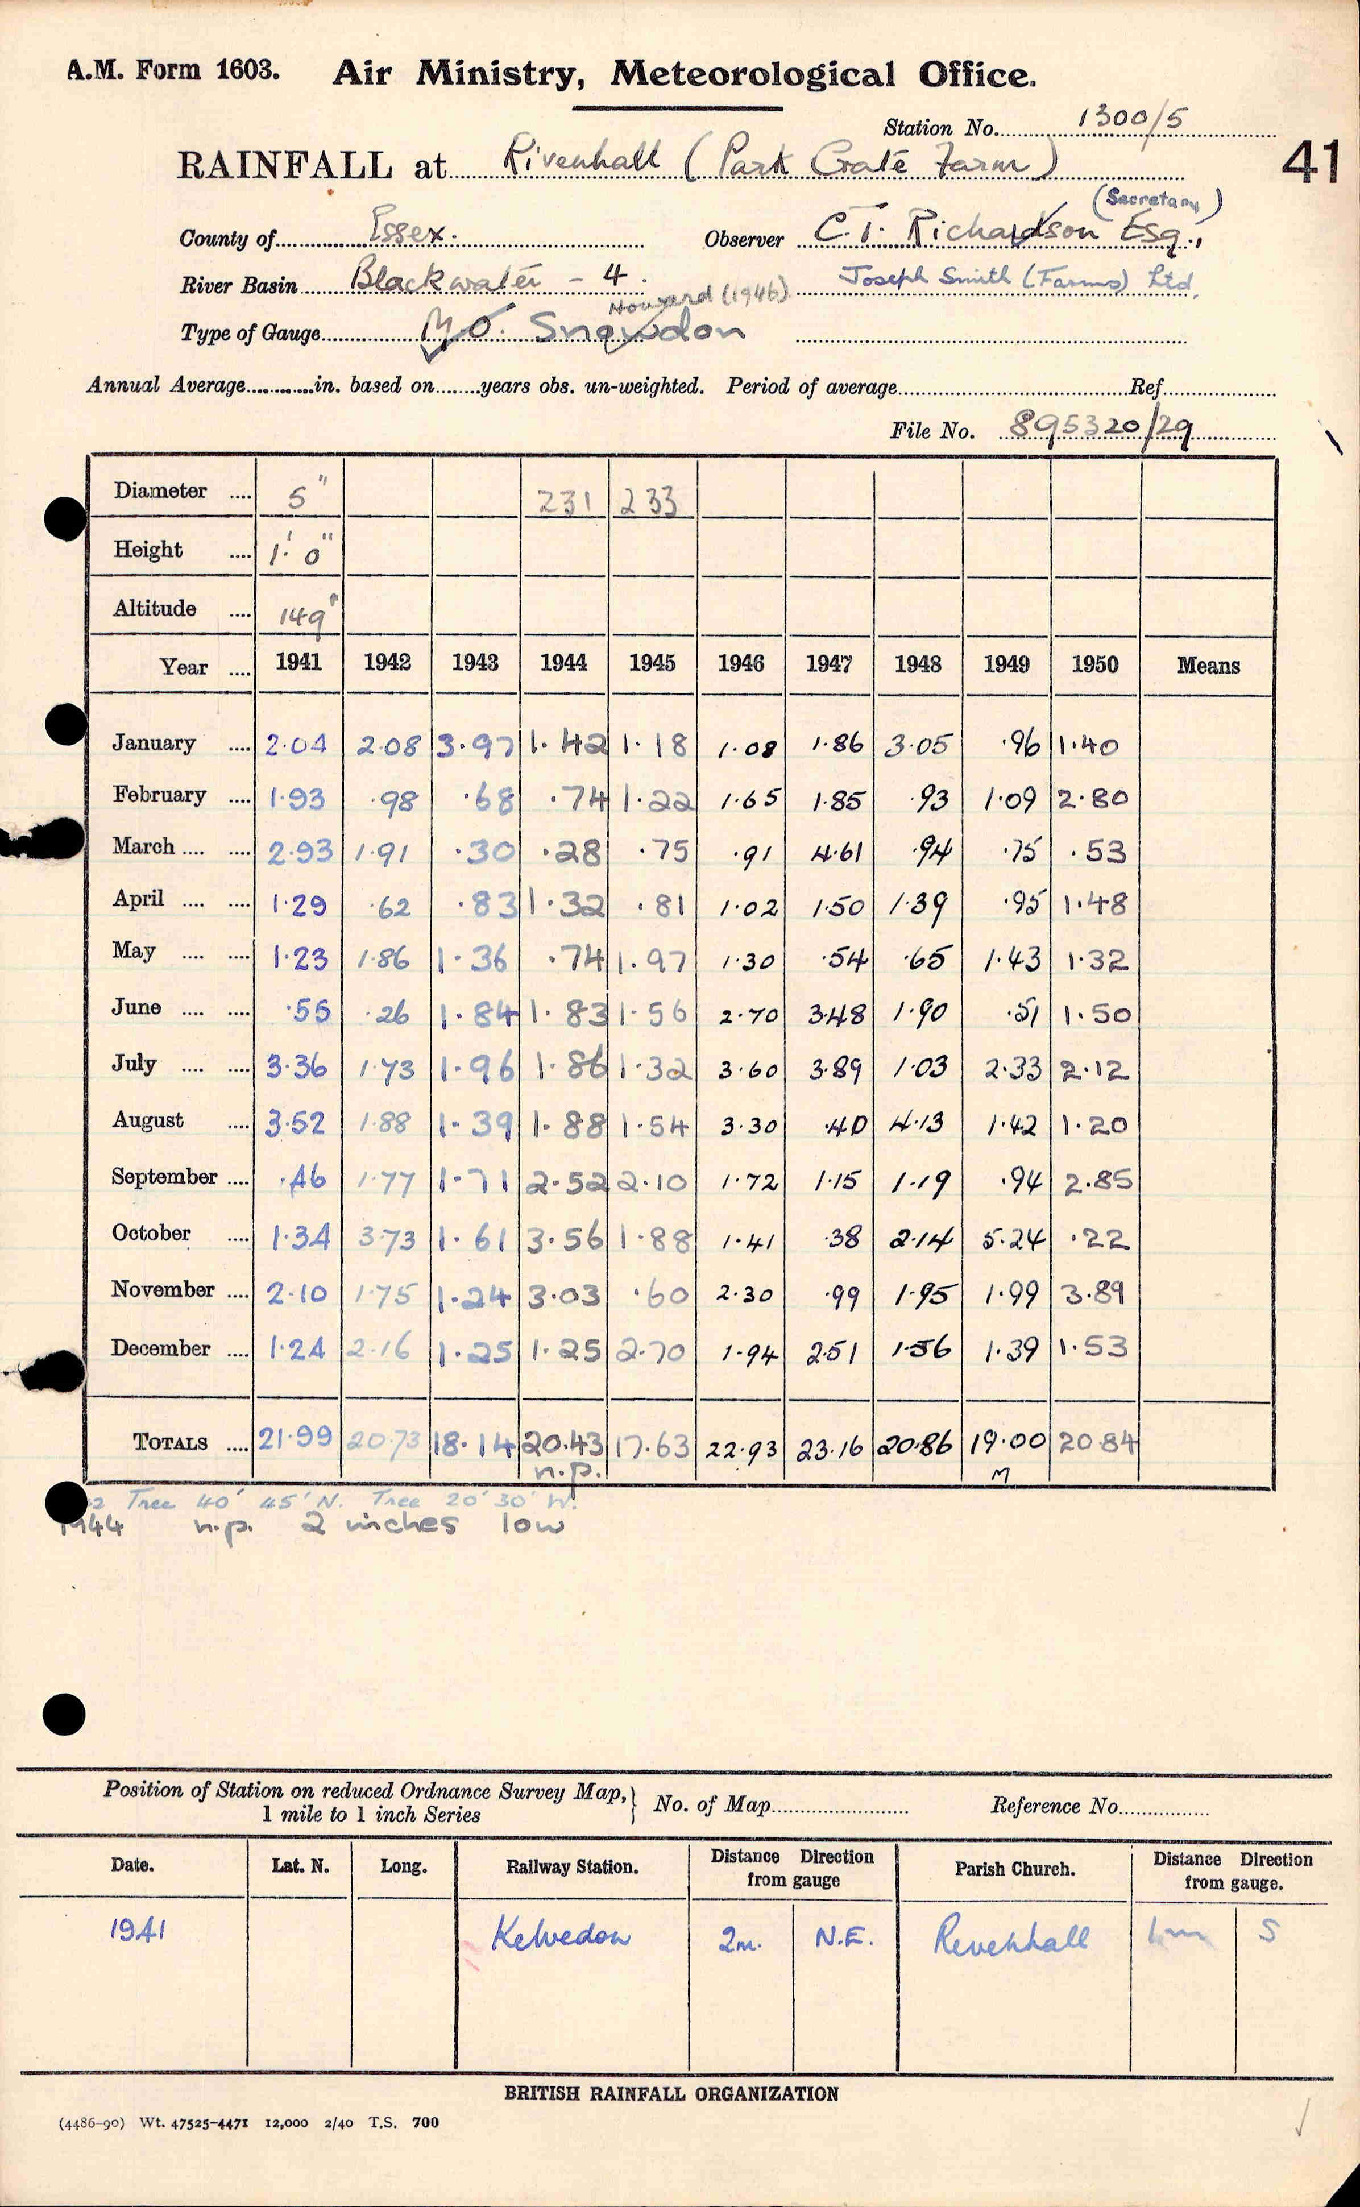 A.M. Form 1603. Air Ministry, Meteorological Office.
Station No. 1300/5
41
RAINFALL at Rivenhall (Park Gate Farm)
(Secretary)
County of Essex. Observer C.T. Richardson Esq.,
River Basin Blackwater - 4. Joseph Smith (Farms) Ltd.
Howard (1946)
Type of Gauge M.O. Snowdon
Annual Average in. based on years obs. un-weighted. Period of average Ref.
File No. 895320/29
Diameter .... 5" 231 233
Height .... 1' 0"
Altitude .... 149'
Year .... 1941 1942 1943 1944 1945 1946 1947 1948 1949 1950 Means
January .... 2.04 2.08 3.97 1.42 1.18 1.08 1.86 3.05 .96 1.40
February .... 1.93 .98 .68 .74 1.22 1.65 1.85 .93 1.09 2.80
March .... .... 2.93 1.91 .30 .28 .75 .91 4.61 .94 .75 .53
April .... .... 1.29 .62 .83 1.32 .81 1.02 1.50 1.39 .95 1.48
May .... .... 1.23 1.86 1.36 .74 1.97 1.30 .54 .65 1.43 1.32
June .... .... .55 .26 1.84 1.83 1.56 2.70 3.48 1.90 .51 1.50
July .... .... 3.36 1.73 1.96 1.86 1.32 3.60 3.89 1.03 2.33 2.12
August .... 3.52 1.88 1.39 1.88 1.54 3.30 .40 4.13 1.42 1.20
September .... .46 1.77 1.71 2.52 2.10 1.72 1.15 1.19 .94 2.85
October .... 1.34 3.73 1.61 3.56 1.88 1.41 .38 2.14 5.24 .22
November .... 2.10 1.75 1.24 3.03 .60 2.30 .99 1.95 1.99 3.89
December .... 1.24 2.16 1.25 1.25 2.70 1.94 2.51 1.56 1.39 1.53
TOTALS .... 21.99 20.73 18.14 20.43 17.63 22.93 23.16 20.86 19.00 20.84
n.p. M
2 Tree 40' 45' N. Tree 20' 30' W.
1944 n.p. 2 inches low
Position of Station on reduced Ordnance Survey Map, 1 mile to 1 inch Series } No. of Map Reference No.
Date. Lat. N. Long. Railway Station. Distance Direction from gauge Parish Church. Distance Direction from gauge.
1941 Kelvedon 2m. N.E. Revenhall 1m S
BRITISH RAINFALL ORGANIZATION
(4486-90) Wt. 47525-4471 12,000 2/40 T.S. 700